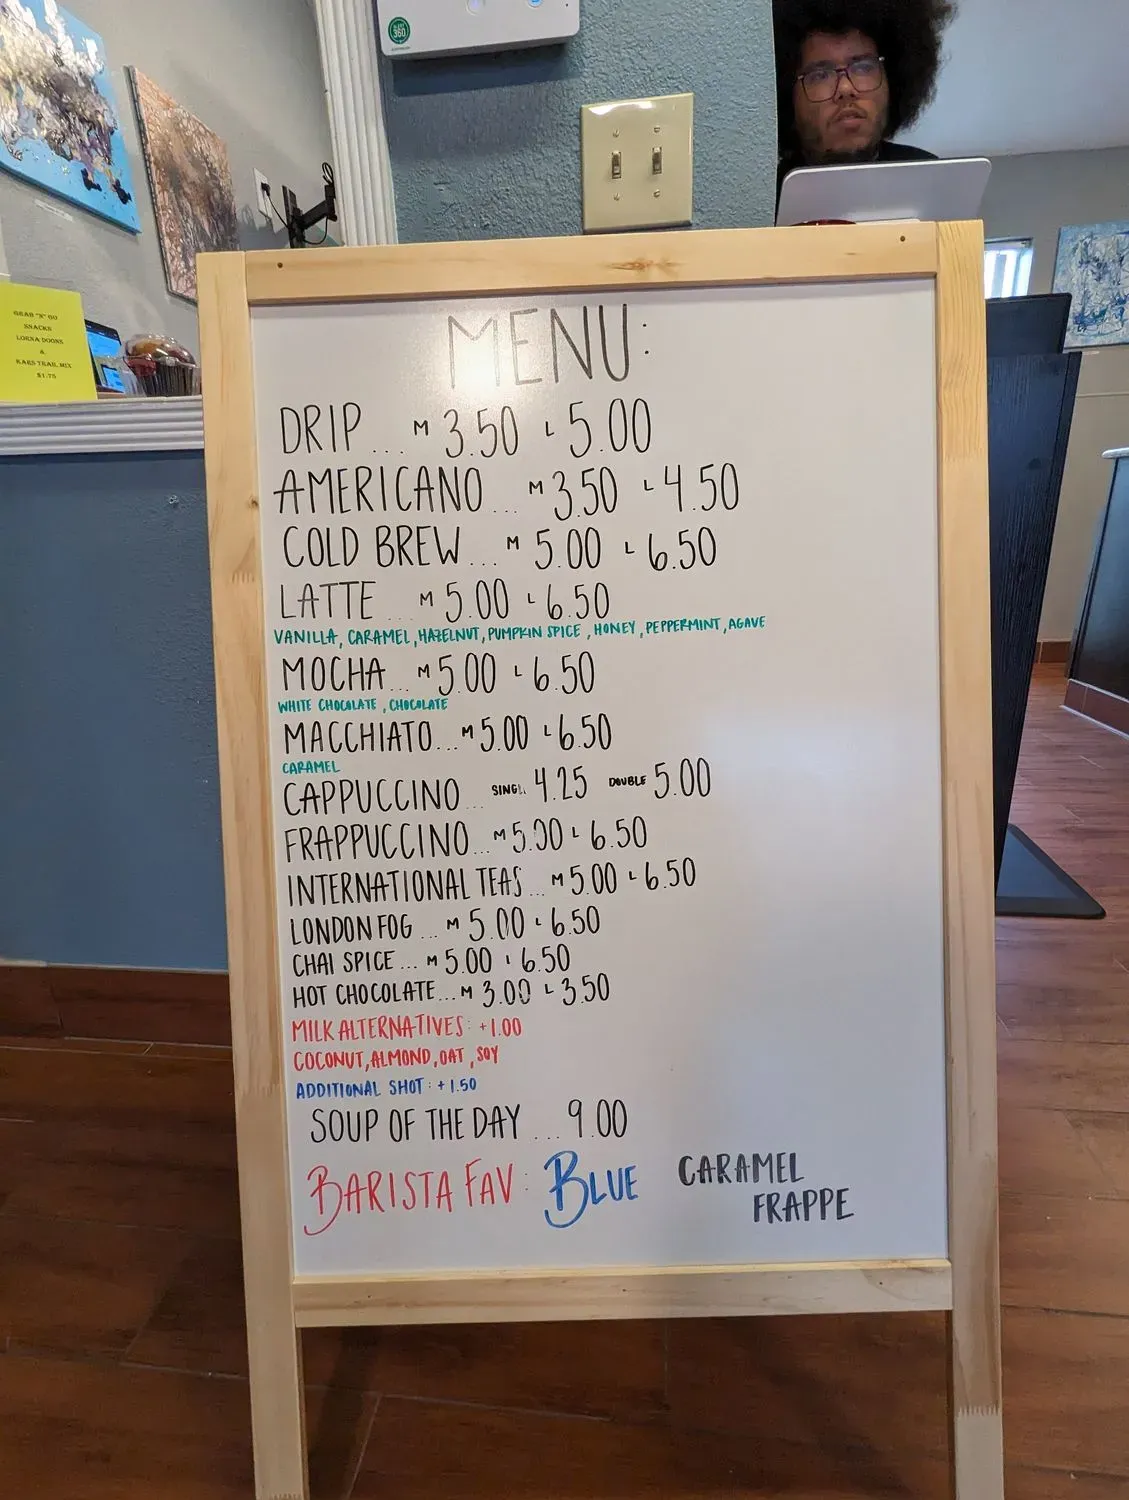 GRAB "N" GO
SNACKS
LORNA DOONS
&
KARS TRAIL MIX
$1.75
360
MENU:
DRIP ... M 3.50 L 5.00
AMERICANO ... M 3.50 L 4.50
COLD BREW ... M 5.00 L 6.50
LATTE ... M 5.00 L 6.50
VANILLA, CARAMEL, HAZELNUT, PUMPKIN SPICE, HONEY, PEPPERMINT, AGAVE
MOCHA ... M 5.00 L 6.50
WHITE CHOCOLATE, CHOCOLATE
MACCHIATO ... M 5.00 L 6.50
CARAMEL
CAPPUCCINO ... 4.25 DOUBLE 5.00
FRAPPUCCINO ... M 5.00 L 6.50
INTERNATIONAL TEAS ... M 5.00 L 6.50
LONDON FOG ... M 5.00 L 6.50
CHAI SPICE ... M 5.00 L 6.50
HOT CHOCOLATE ... M 3.00 L 3.50
MILK ALTERNATIVES: +1.00
COCONUT, ALMOND, OAT, SOY
ADDITIONAL SHOT: +1.50
SOUP OF THE DAY ... 9.00
BARISTA FAV: BLUE CARAMEL
FRAPPE